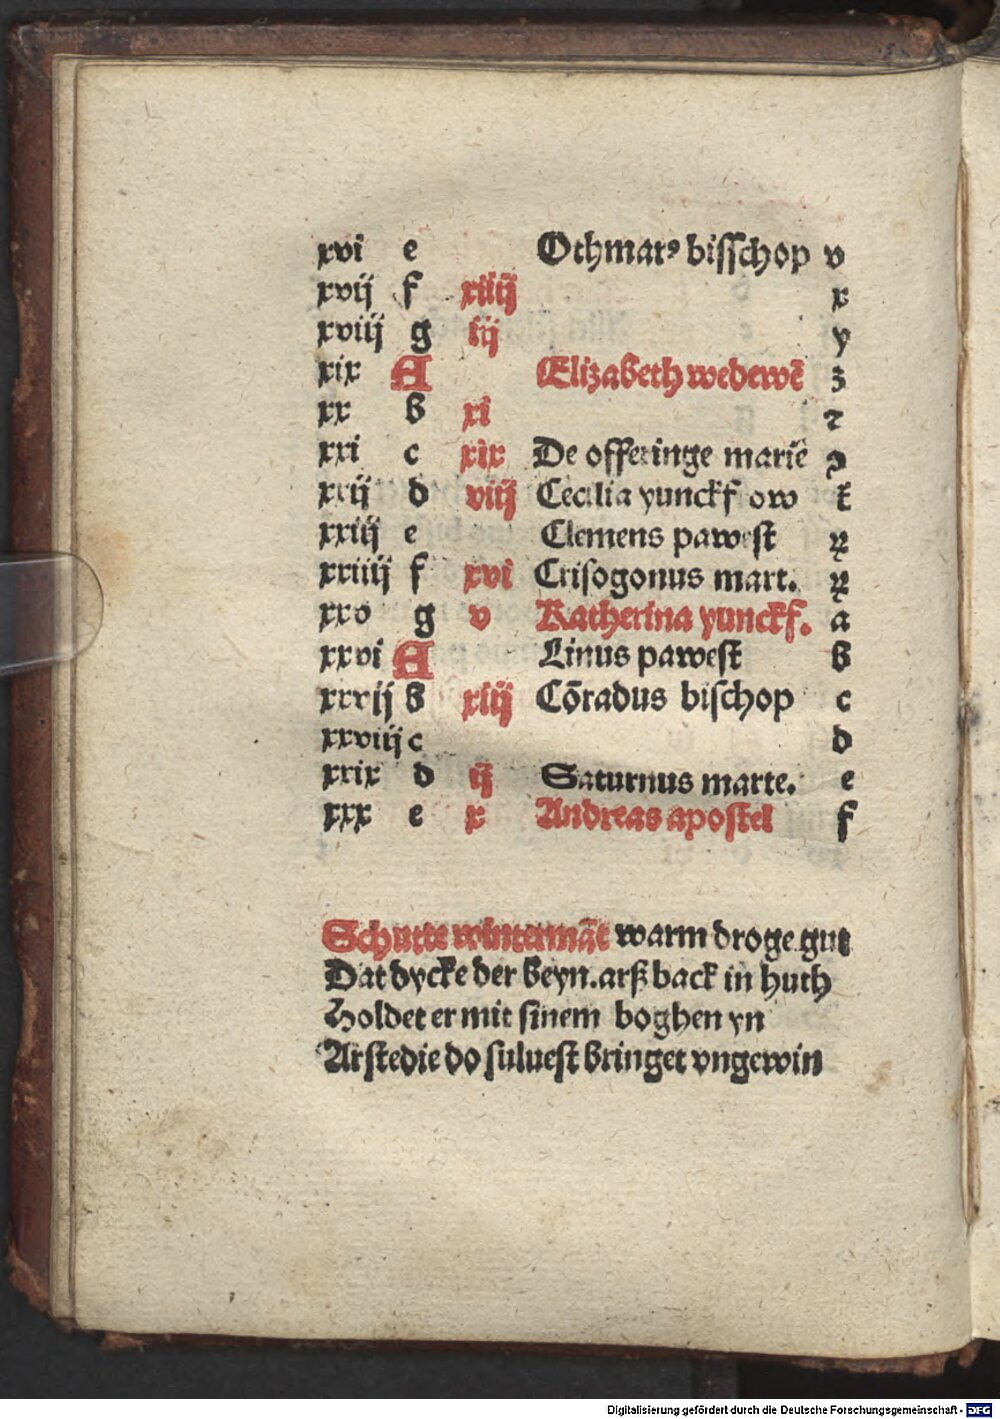 xvi e Othmarꝰ bisschop v
xvij f xiiij x
xviij g iij y
xix A Elizabeth wedewē z
xx b xi ⁊
xxi c xix De offeringe mariē ꝯ
xxij d viij Cecilia yunckfrow
xxiij e Clemens pawest
xxiiij f xvi Crisogonus mart.
xxv g v Katherina yunckf. a
xxvi A Linus pawest b
xxvij b xiij Cōradus bischop c
xxviij c d
xxix d ij Saturnus marte. e
xxx e x Andreas apostel f
Schutte wintermāt warm droge gut
Dat dycke der beyn. arß back in huth
Holdet er mit sinem boghen yn
Arstedie do suluest bringet vngewin
Digitalisierung gefördert durch die Deutsche Forschungsgemeinschaft - DFG